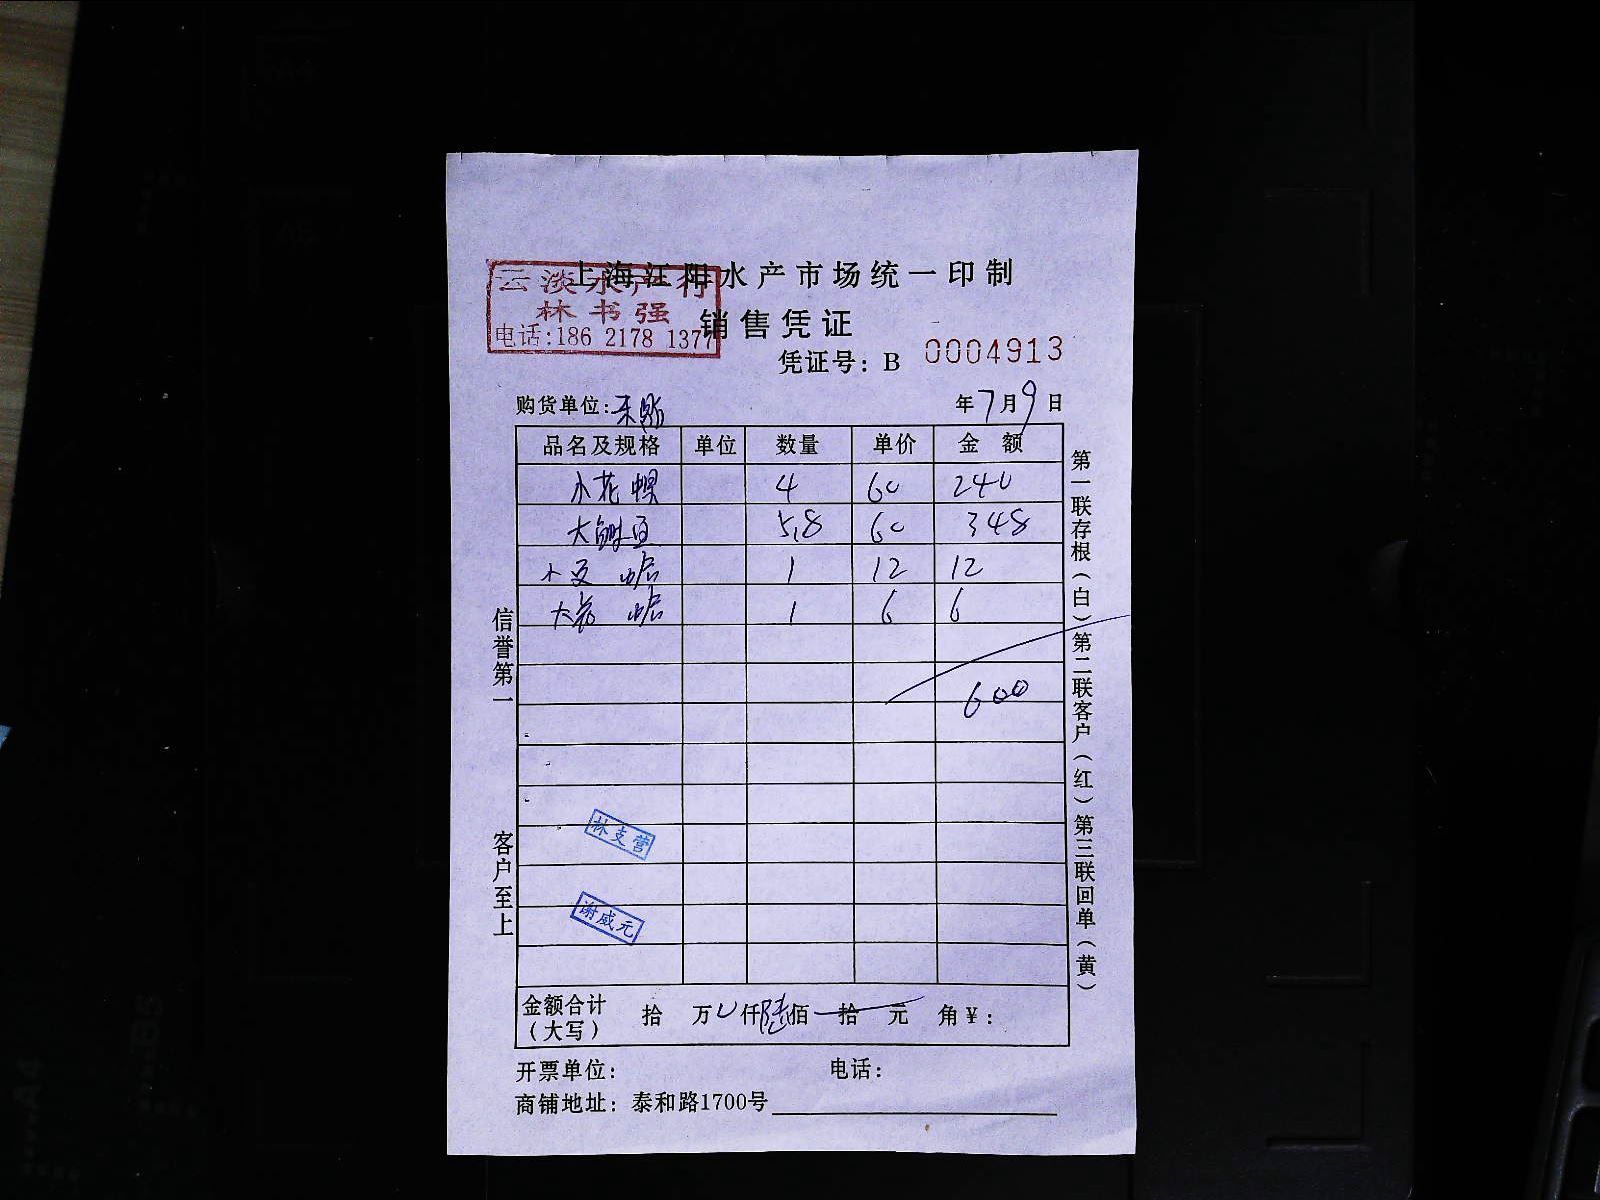 上海江阳水产市场统一印制
云淡水产行
林书强
电话:186 2178 1377
销售凭证
凭证号: B 0004913
购货单位: 年7月9日
品名及规格 单位 数量 单价 金额
小花螺 4 60 240
大鲥鱼 5.8 60 348
1 12 12
大 1 6 6
600
林支营
谢威元
金额合计(大写) 拾 万 仟陆佰 拾 元 角¥:
开票单位: 电话:
商铺地址: 泰和路1700号
信誉第一 客户至上
第一联存根(白)第二联客户(红)第三联回单(黄)